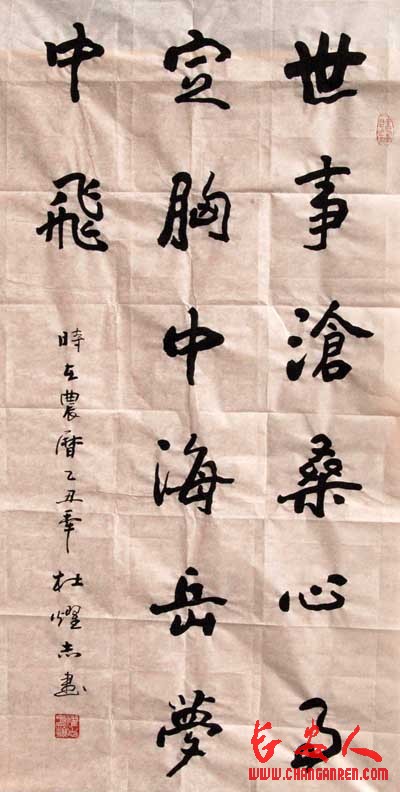 世事滄桑心事
定胸中海岳夢
中飛
時在農曆乙丑年 杜燿志書
长安人
WWW.CHANGANREN.COM